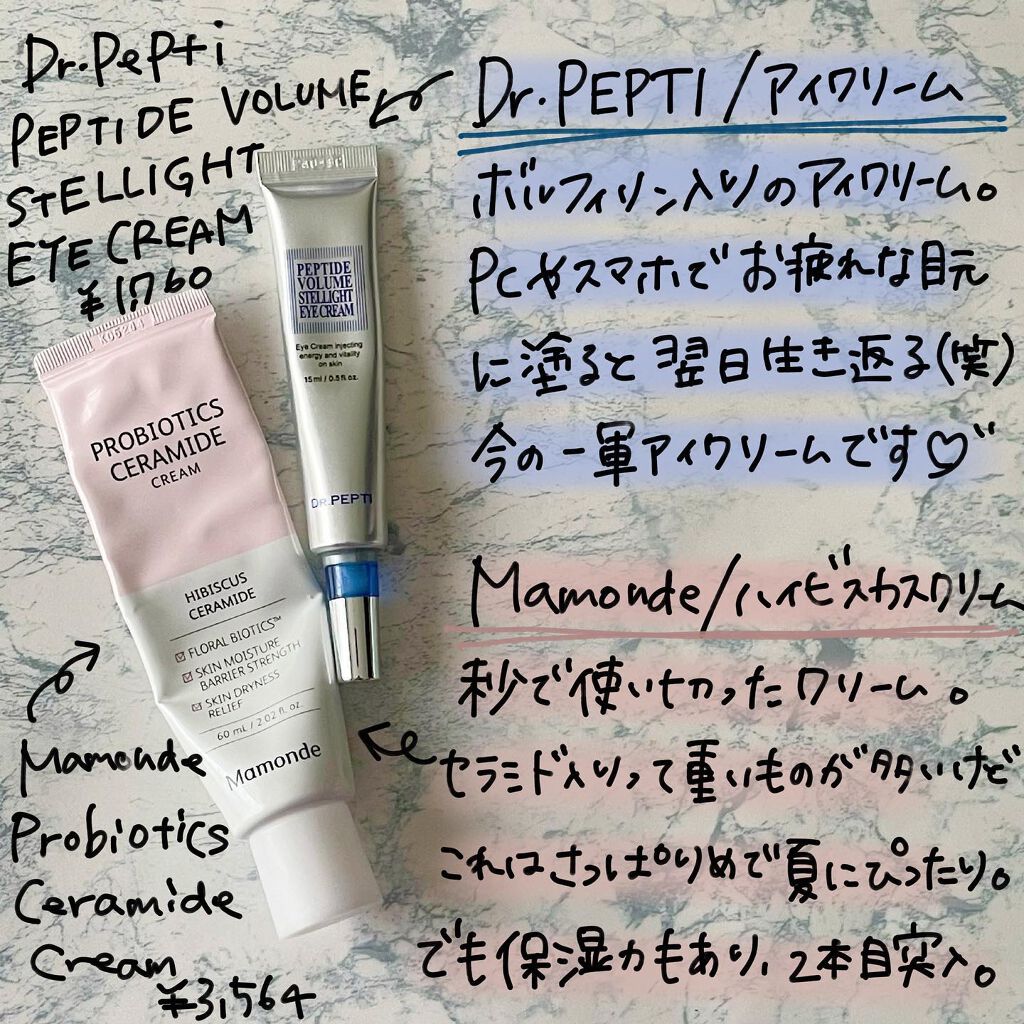 Dr.Pepti
PEPTIDE VOLUME
STELLIGHT
EYE CREAM
¥1,760
Dr.PEPTI/アイクリーム
ボルフィリン入りのアイクリーム。
PCやスマホでお疲れな目元
に塗ると翌日生き返る(笑)
今の一軍アイクリームです♡〃
PEPTIDE
VOLUME
STELLIGHT
EYE CREAM
Eye Cream injecting
energy and vitality
on skin
15ml / 0.5 fl.oz.
DR.PEPTI
PROBIOTICS
CERAMIDE
CREAM
HIBISCUS
CERAMIDE
FLORAL BIOTICS™
SKIN MOISTURE
BARRIER STRENGTH
SKIN DRYNESS
RELIEF
60 mL / 2.02 fl. oz.
Mamonde
Mamonde/ハイビスカスクリーム
秒で使い切ったクリーム。
セラミド入りって重いものが多いけど
これはさっぱりめで夏にぴったり。
でも保湿力もあり、2本目突入。
Mamonde
Probiotics
Ceramide
Cream
¥3,564